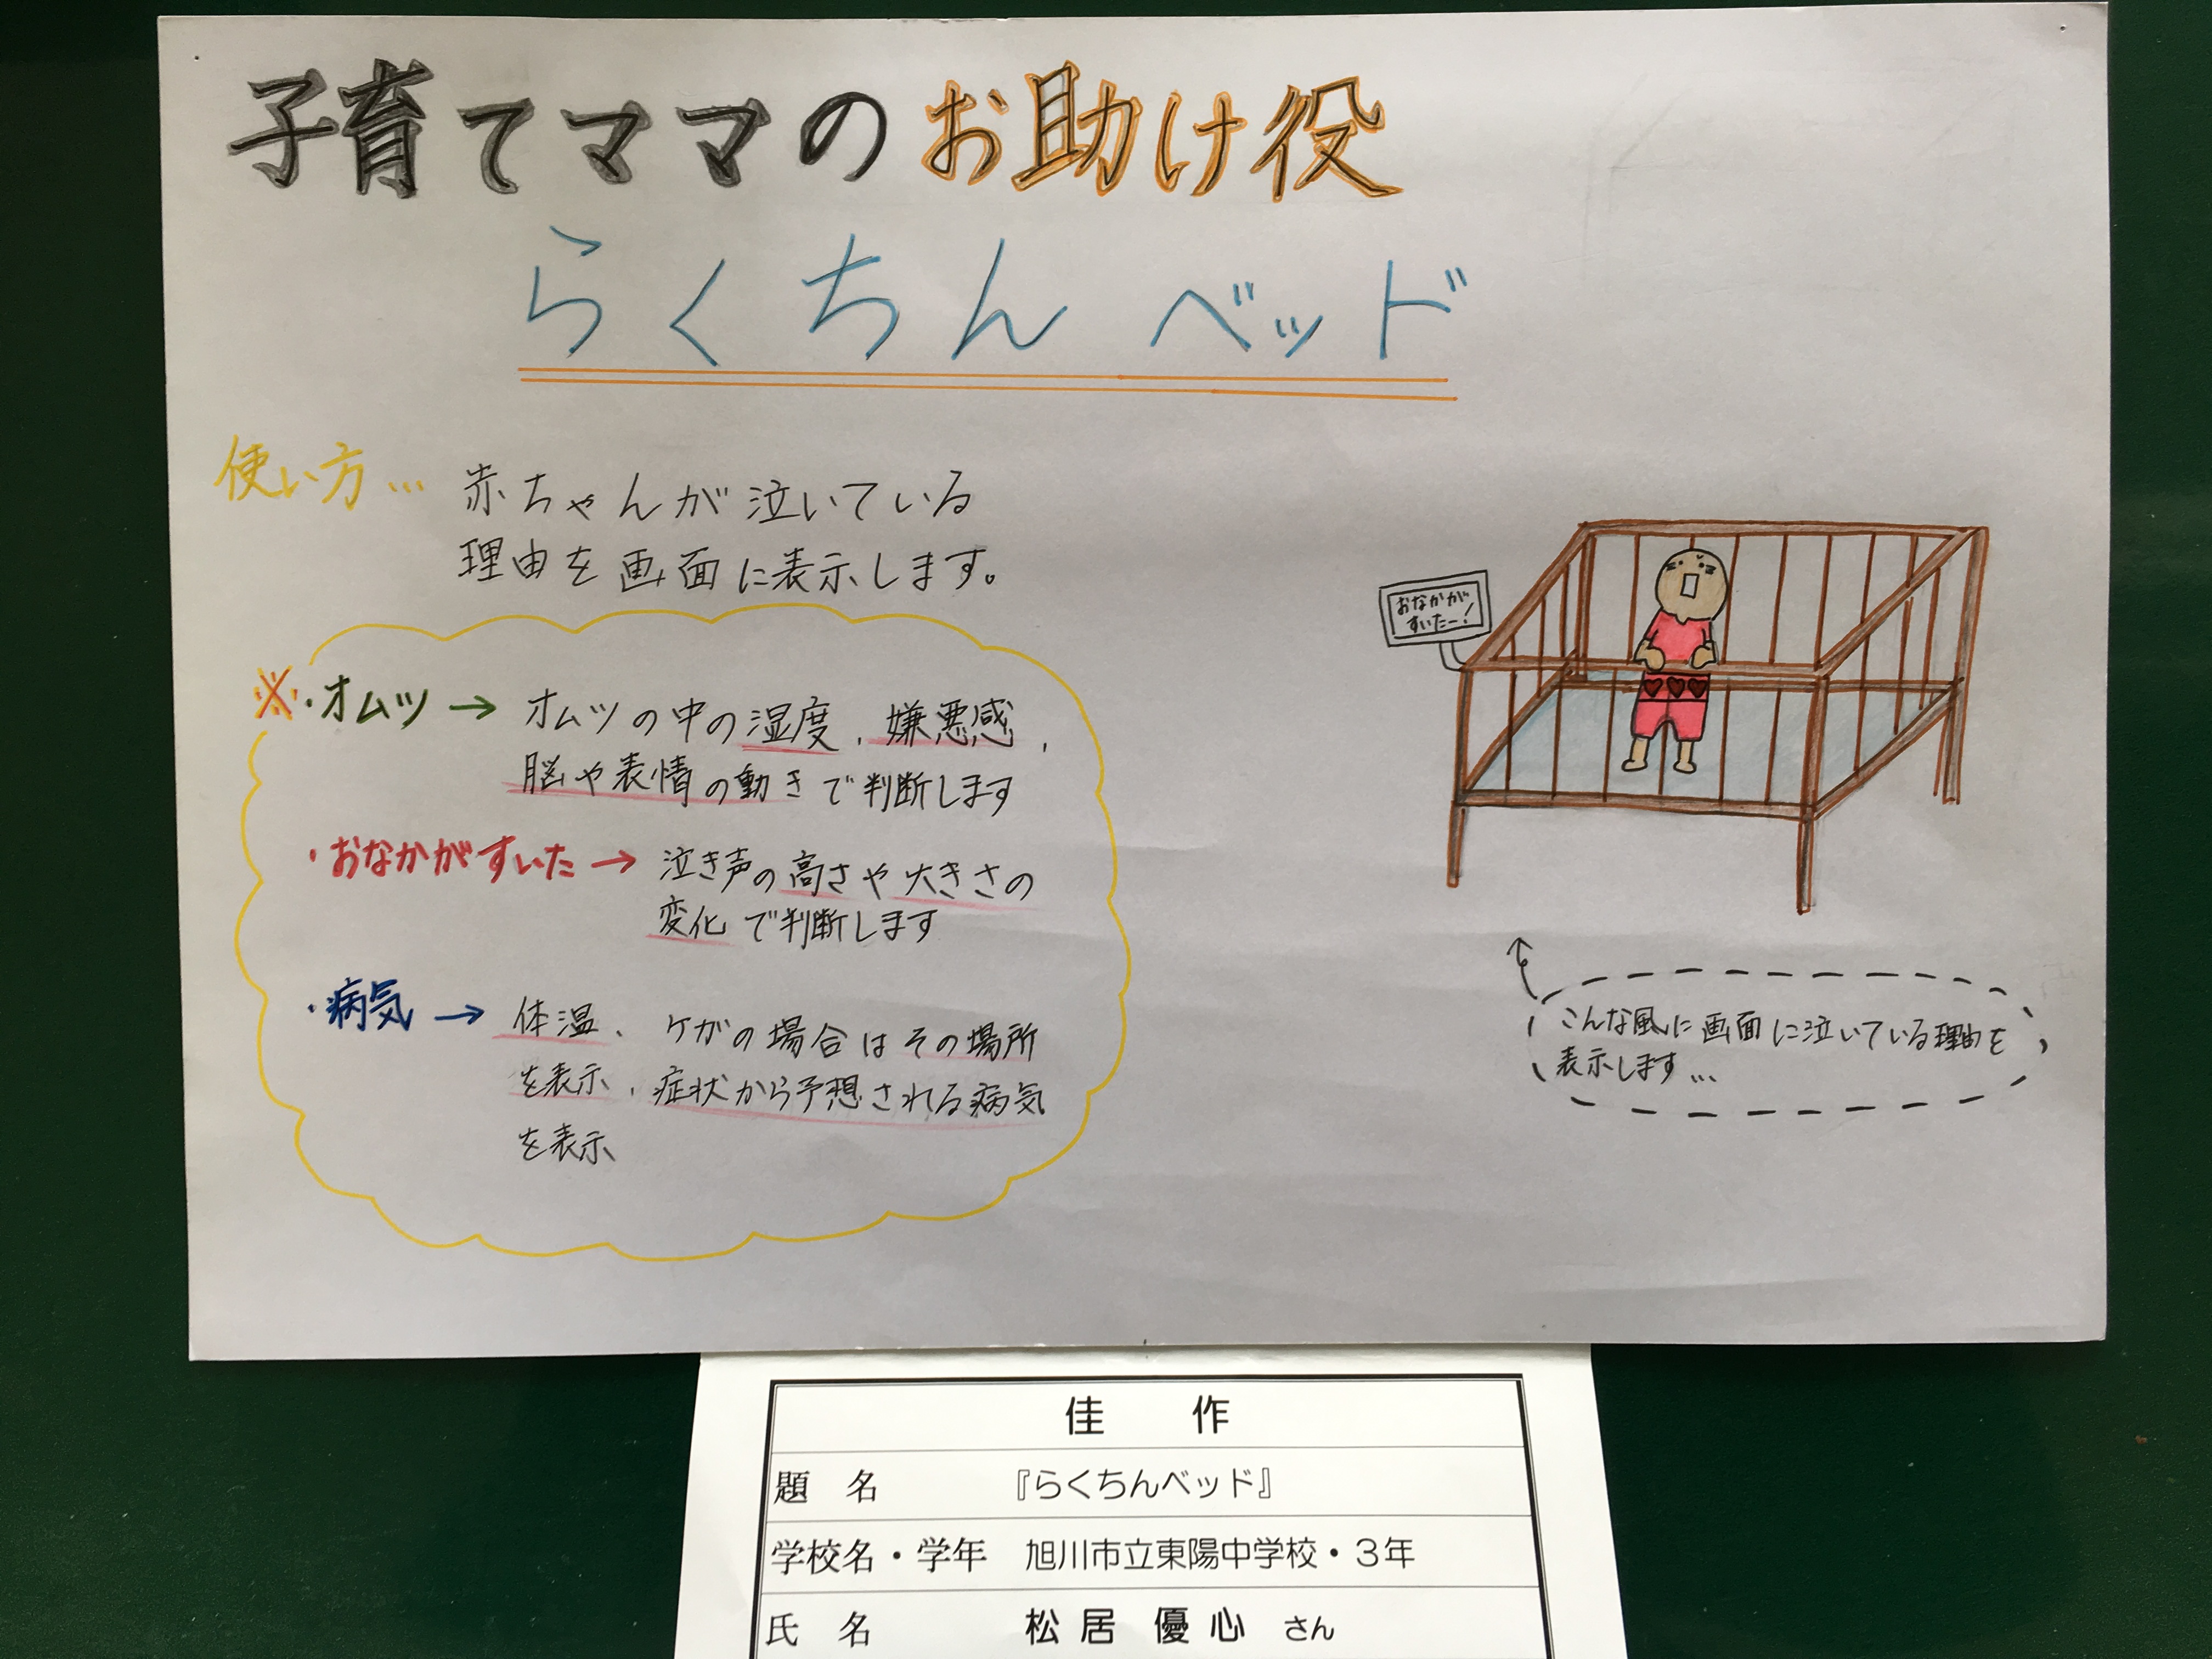 子育てママのお助け役
らくちんベッド
使い方… 赤ちゃんが泣いている
理由を画面に表示します。
※・オムツ → オムツの中の湿度、嫌悪感、
脳や表情の動きで判断します
・おなかがすいた → 泣き声の高さや大きさの
変化で判断します
・病気 → 体温、ケガの場合はその場所
を表示、症状から予想される病気
を表示
おなかが
すいたー!
こんな風に画面に泣いている理由を
表示します…
佳 作
題 名 『らくちんベッド』
学校名・学年 旭川市立東陽中学校・3年
氏 名 松居 優心 さん